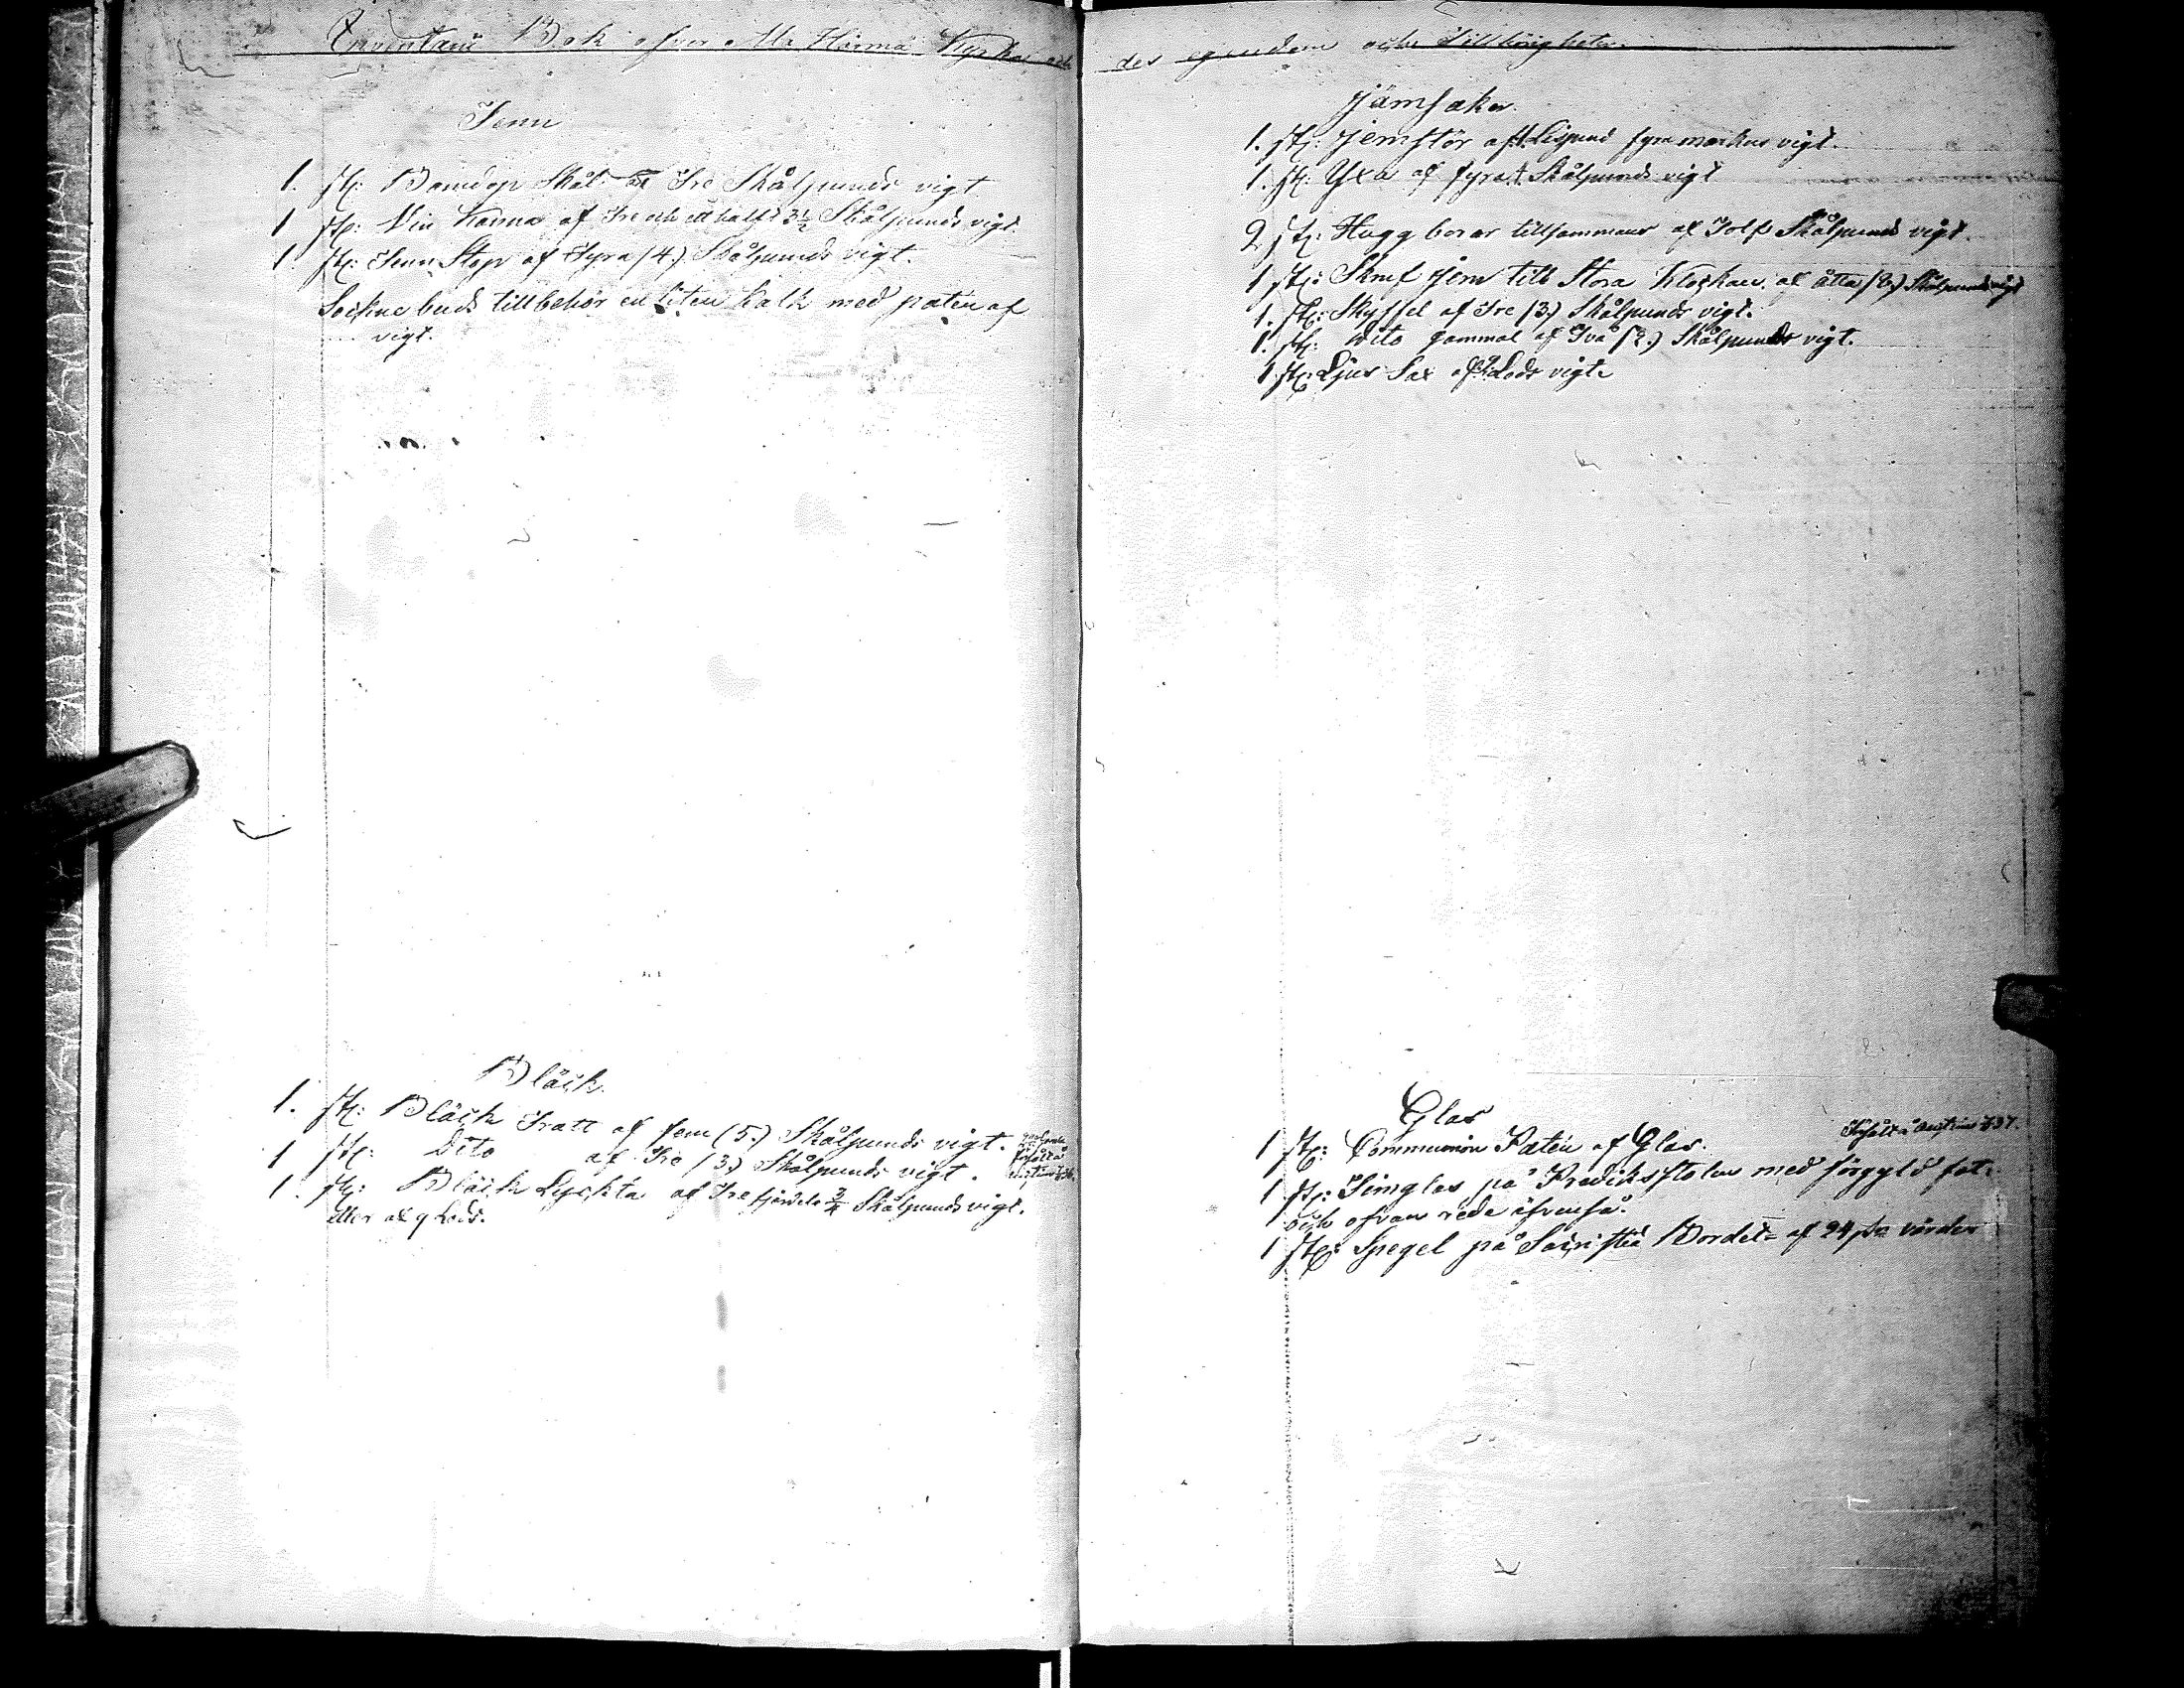 Inventarii Bok öfver Ala Härmä Kyrkas och
des egendom och Tillhörigheter.
Tenn
1. st: Barndop Skål af Tre Skålpunds vigt
1 st: Vin Kanna af Tre och ett halft 3½ Skålpunds vigt.
1. st: Tenn Stop af Fyra (4.) Skålpunds vigt.
Sockne buds tillbehör en liten kalk med patén af
vigt.
Bläck.
1. st: Bläck Tratt af fem (5.) Skålpunds vigt.
1 st: Dito af Tre (3.) Skålpunds vigt.
försålt å
1. st: Bläck Lyckta af Tre fjerdels ¾ Skålpunds vigt.
eller af 9 Lod.
Jämsaker.
1. st: Jernstör af 1. Lispund fyra markers vigt.
1. st: Yxa af fyra 4. Skålpunds vigt
2 st: Hugg borar tillsammans af Tolf Skålpunds vigt.
1 st: Skruf Jern till Stora Klockan. af åtta (8.) Skålpunds vigt
1. st: Skyffel af Tre (3.) Skålpunds vigt.
1. st: Dito gammal af Två (2.) Skålpunds vigt.
1 st: Ljus Sax af Lods vigt.
Glas
1 st: Communion Patén af Glas. Försålt å Auction 837.
1 st: Timglas på Predikstolen med förgyld fot
och ofvan rede äfvenså.
1 st: Spegel på Sacristiæ Bordet af 24 värde